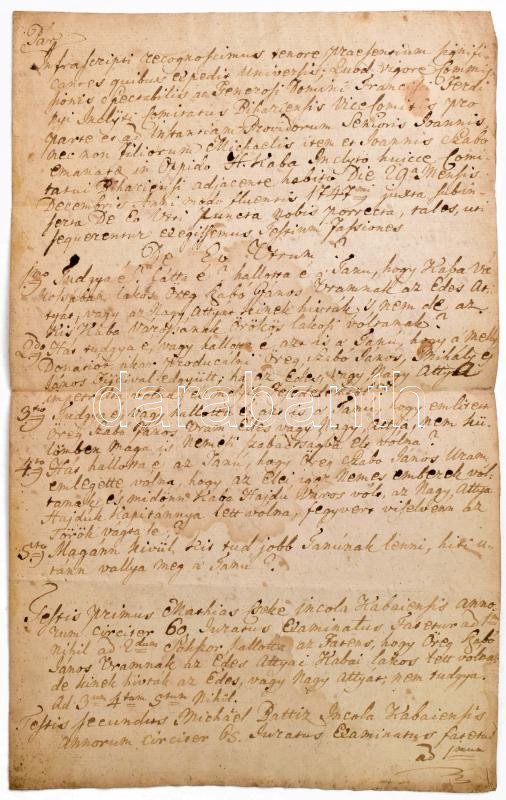 Par
Infrascripti recognoscimus tenore praesentium signifi
cantes quibus expedit Universis; Quod vigore Commis
sionis Spectabilis ac Generosi Domini Francisci Ferdi
Inclyti Comitatus Bihariensis Vice Comitis pro
parte et ad Instantiam Providorum Senioris Joannis
nec non filiorum Michaelis item et Joannis Szabo
emanatae in Oppido H. Kaba Inclyto huicce Comi
tatui Bihariensi adjacente habitae Die 29a Mensis
Decembris Anni modo fluentis 1747mi juxta subin
serta De Eo Utri Puncta nobis porrecta, tales, uti
sequerentur exegissemus Testium Fassiones
De Eo Utrum?
1mo Tudgya é? Látta é? hallotta é a Tanu, hogy Kaba Va
rossában lakos Öreg Szabó János Uramnak az Édes At
tyát, vagy az Nagy Attyát kinek hivták s nem de az
Kaba Varossanak Örökös lakosi voltanak?
2do Hát tudgya é, vagy hallotta é azt is a Tanu, hogy a mely
Donatiot akar producalni Öreg Szabo János, Mihály és
János Fiaival együtt; hogy az Édes, vagy Nagy Attya
3tio Tudgya vagy hallotta é azt is a Tanu, hogy emlitett
Öreg Szabo János Uram Édes vagy Nagy Attya nem kü
lömben maga is Nemesi szabadságba élt volna?
4to Hát hallotta é az Tanú, hogy Öreg Szabo János Uram,
emlegette volna, hogy az Elei igaz Nemes emberek vol
tanak; és midőnn Kaba Hajdu Város vólt, az Nagy Attya
Hajdúk Kapitánnya lett volna, fegyvert viselvenn az
Török vágta le?
5to Magann kivül, kit tud jobb Tanúnak lenni, hiti u
tann vallya meg a Tanu?
Testis Primus Mathias Beke Incola Kabaiensis anno
rum circiter 60 Juratus Examinatus Fatetur ad 1um
nihil ad 2dum Sokszor hallotta az Fatens, hogy Öreg Szabo
János Uramnak az Édes Attya Kabai lakos lett volna
de kinek hivták az Édes, vagy Nagy Attyát, nem tudgya.
Ad 3um 4tum 5tum Nihil.
Testis secundus Michael Battiz Incola Kabaiensis
annorum circiter 65. Juratus Examinatus fatetur
ad 1mum
darabanth